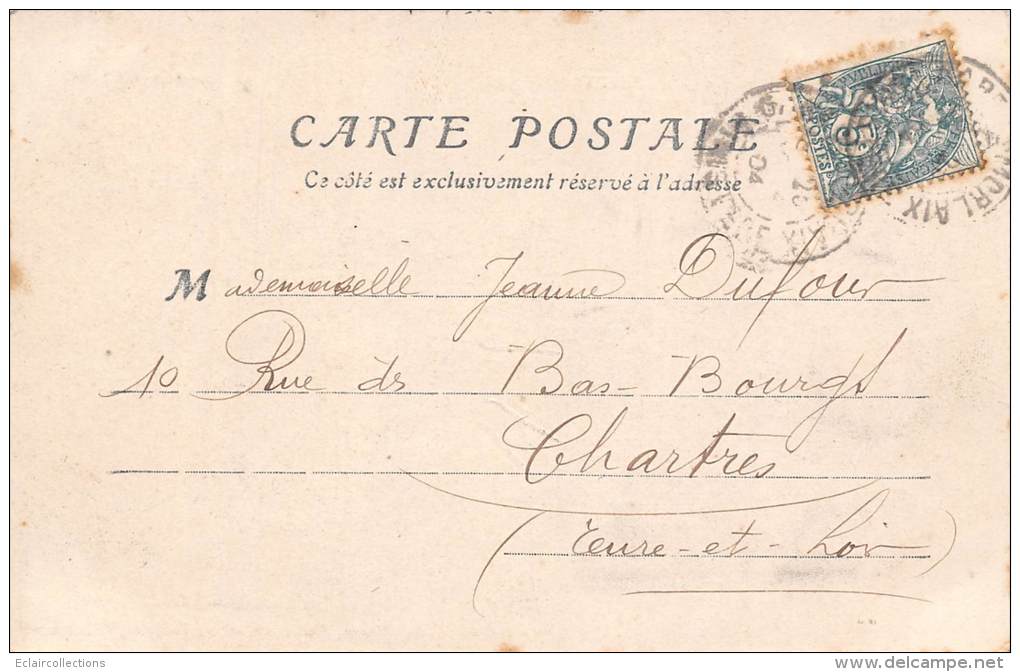 CARTE POSTALE
Ce côté est exclusivement réservé à l'adresse
5c
POSTES
MORLAIX
04
Mademoiselle Jeanne Dufour
10 Rue des Bas-Bourgs
Chartres
(Eure-et-Loir)
Eclaircollections
www.delcampe.net